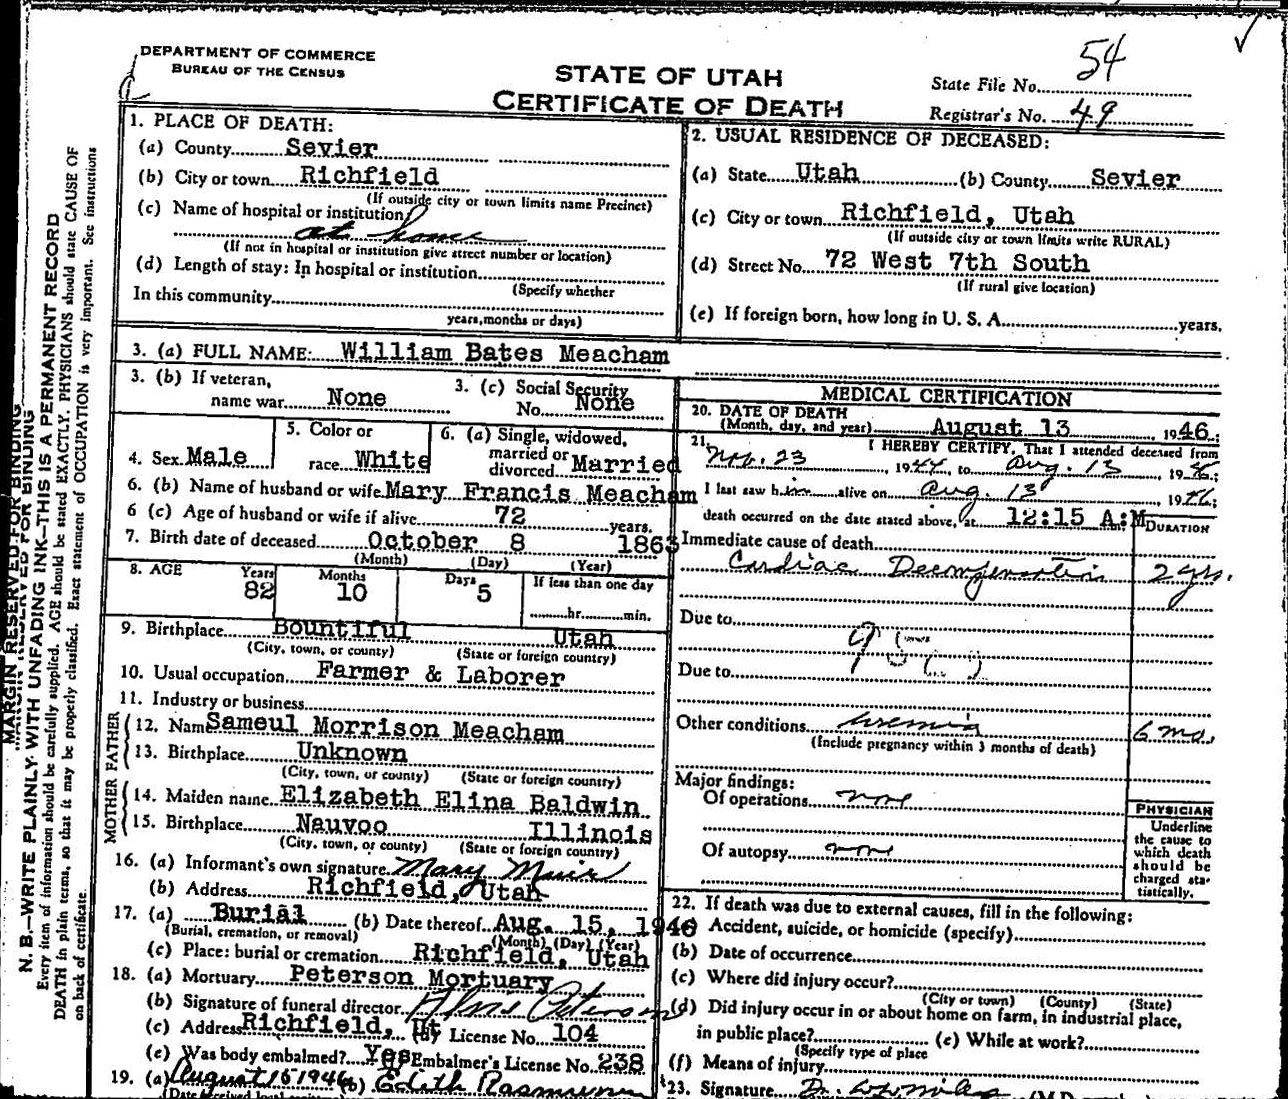 DEPARTMENT OF COMMERCE
BUREAU OF THE CENSUS
STATE OF UTAH
CERTIFICATE OF DEATH
State File No. 54
Registrar's No. 49
MARGIN RESERVED FOR BINDING
N. B.—WRITE PLAINLY, WITH UNFADING INK—THIS IS A PERMANENT RECORD
Every item of information should be carefully supplied. AGE should be stated EXACTLY. PHYSICIANS should state CAUSE OF
DEATH in plain terms, so that it may be properly classified. Exact statement of OCCUPATION is very important. See instructions
on back of certificate.
1. PLACE OF DEATH:
(a) County Sevier
(b) City or town Richfield
(If outside city or town limits name Precinct)
(c) Name of hospital or institution
at home
(If not in hospital or institution give street number or location)
(d) Length of stay: In hospital or institution
(Specify whether
In this community
years, months or days)
2. USUAL RESIDENCE OF DECEASED:
(a) State Utah (b) County Sevier
(c) City or town Richfield, Utah
(If outside city or town limits write RURAL)
(d) Street No. 72 West 7th South
(If rural give location)
(e) If foreign born, how long in U. S. A. years.
3. (a) FULL NAME: William Bates Meacham
3. (b) If veteran, name war None
3. (c) Social Security No. None
4. Sex Male
5. Color or race White
6. (a) Single, widowed, married or divorced Married
6. (b) Name of husband or wife Mary Francis Meacham
6 (c) Age of husband or wife if alive 72 years.
7. Birth date of deceased October 8 1863
(Month) (Day) (Year)
8. AGE Years 82 Months 10 Days 5 If less than one day hr. min.
9. Birthplace Bountiful Utah
(City, town, or county) (State or foreign country)
10. Usual occupation Farmer & Laborer
11. Industry or business
FATHER
12. Name Sameul Morrison Meacham
13. Birthplace Unknown
(City, town, or county) (State or foreign country)
MOTHER
14. Maiden name Elizabeth Elina Baldwin
15. Birthplace Nauvoo Illinois
(City, town, or county) (State or foreign country)
16. (a) Informant's own signature Mary Muir
(b) Address Richfield, Utah
17. (a) Burial (b) Date thereof Aug. 15, 1946
(Burial, cremation, or removal) (Month) (Day) (Year)
(c) Place: burial or cremation Richfield, Utah
18. (a) Mortuary Peterson Mortuary
(b) Signature of funeral director Peterson
(c) Address Richfield, Ut (d) License No. 104
(e) Was body embalmed? Yes Embalmer's License No. 238
19. (a) August 15 1946 (b) Edith Rasmussen
MEDICAL CERTIFICATION
20. DATE OF DEATH
(Month, day, and year) August 13, 1946;
21. I HEREBY CERTIFY, That I attended deceased from
Nov. 23, 1944, to Aug. 13 1946;
I last saw him alive on Aug. 13 1946;
death occurred on the date stated above, at 12:15 A:M
DURATION
Immediate cause of death
Cardiac Decompensation 2 yrs.
Due to
Due to
Other conditions uremia 6 mo.
(Include pregnancy within 3 months of death)
Major findings:
Of operations none
Of autopsy none
PHYSICIAN
Underline
the cause to
which death
should be
charged sta-
tistically.
22. If death was due to external causes, fill in the following:
Accident, suicide, or homicide (specify)
(b) Date of occurrence
(c) Where did injury occur?
(City or town) (County) (State)
(d) Did injury occur in or about home on farm, in industrial place,
in public place? (e) While at work?
(Specify type of place
(f) Means of injury
23. Signature Dr.